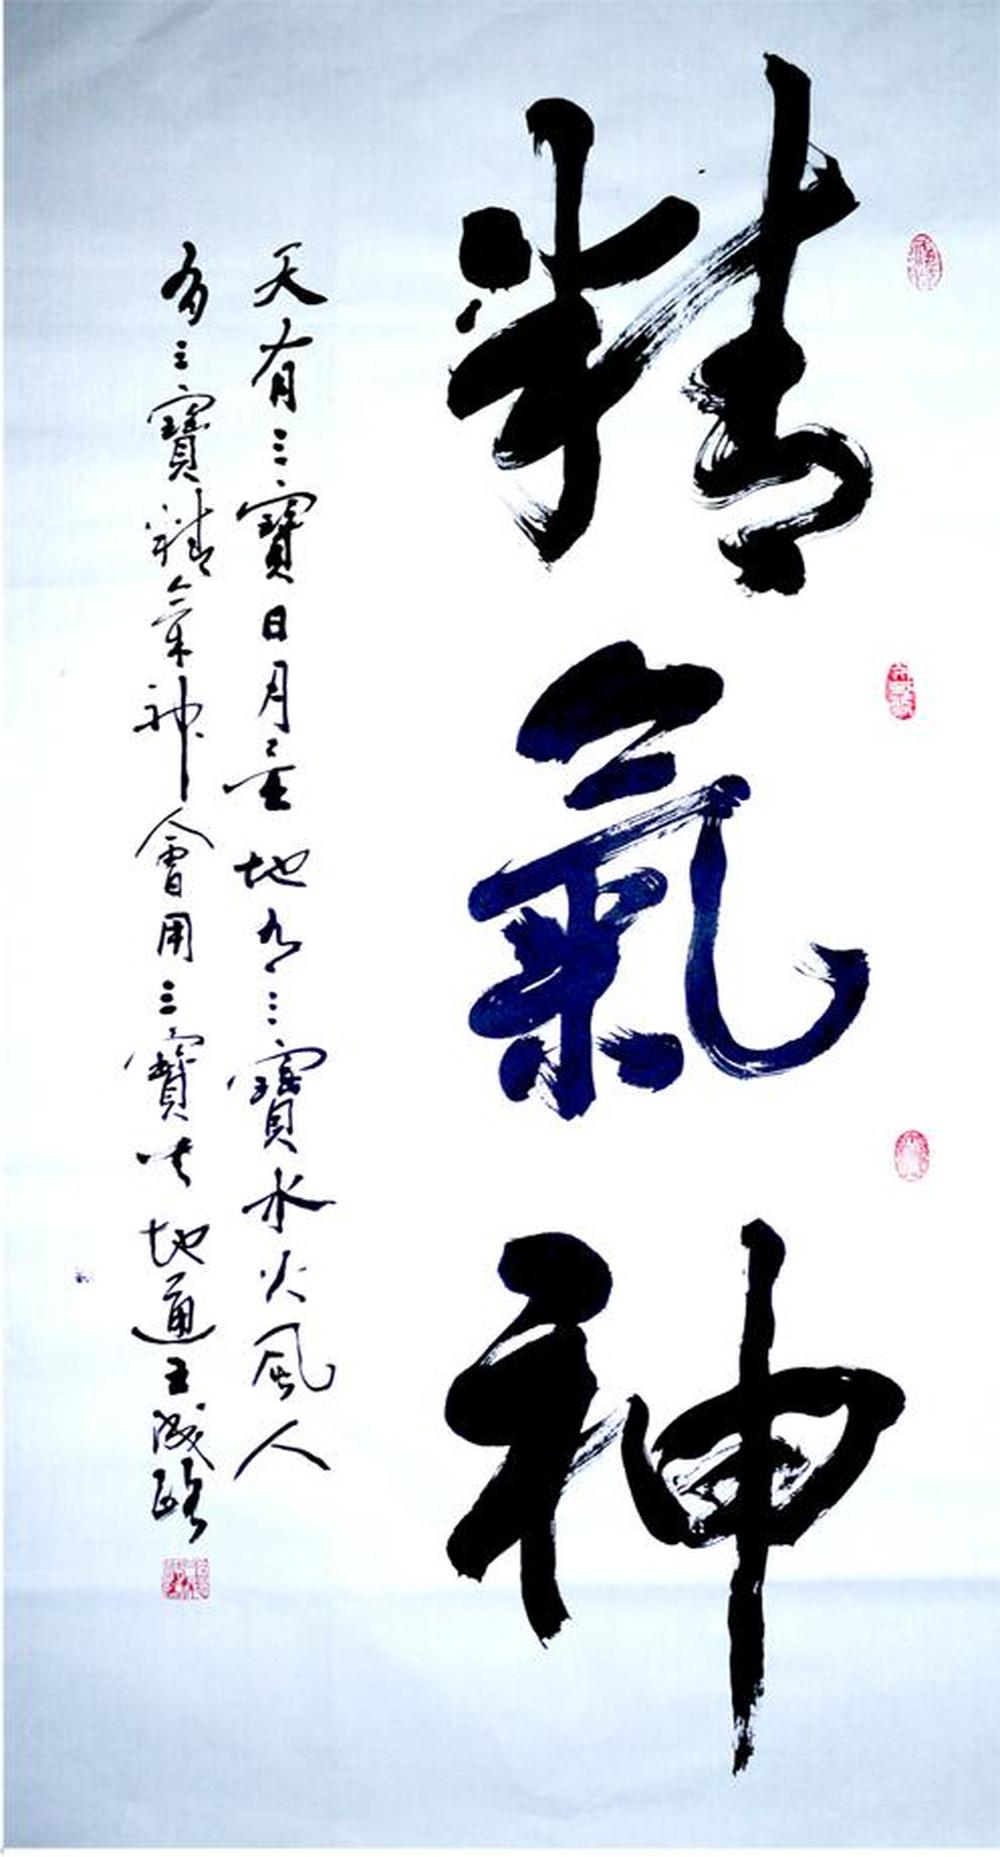 精氣神
天有三寶日月星地有三寶水火風人
有三寶精氣神會用三寶天地通王成路